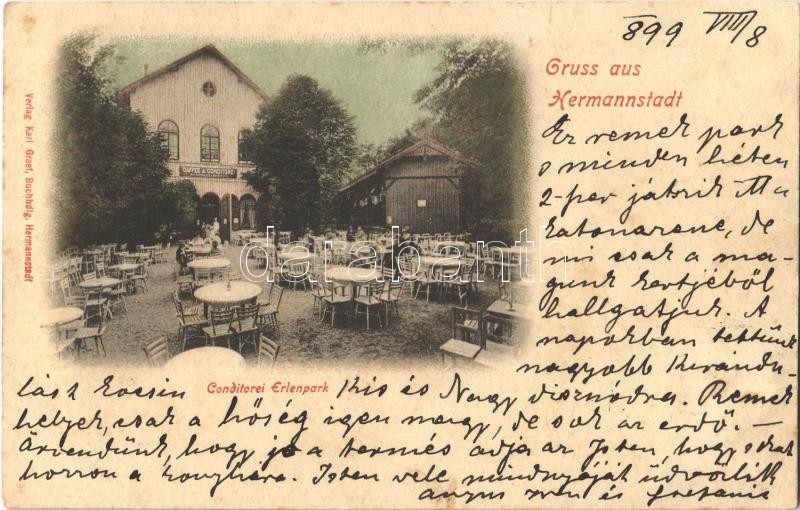 899 VIII/8
Gruss aus
Hermannstadt
Verlag Karl Graef, Buchhdlg. Hermannstadt
CAFFEE & CONDITOREI
darabanth
Ez remek park
s minden héten
2-per játszik
katonazene, de
mi csak a ma-
gunk kertjéből
hallgatjuk. A
napokban tettünk
nagyobb kirándu-
lást kocsin
Conditorei Erlenpark
Kis és Nagy disznódra. Remek
helyek, csak a hőség igen nagy, de sok az erdő. –
Örvendünk, hogy jó a termés adja az Isten, hogy sokat
hozzon a konyhára. Isten vele mindnyáját üdvözlik
és